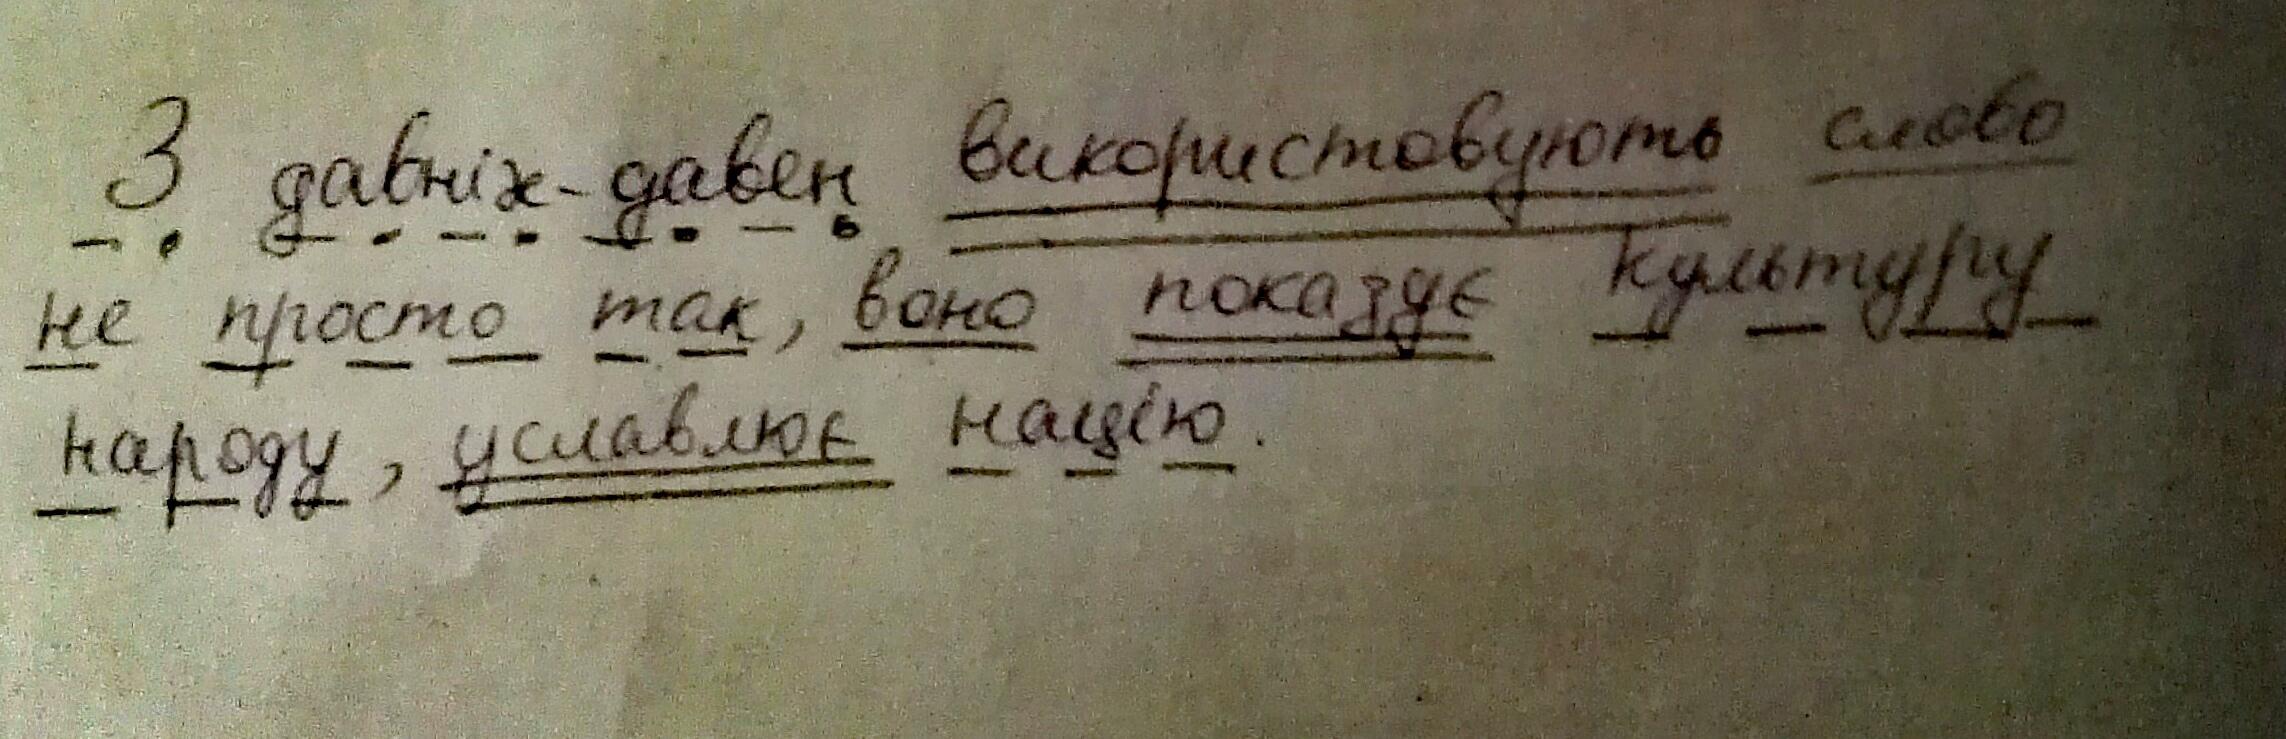 З давніх-давен використовують слово
не просто так, воно показує культуру
народу, уславлює націю.